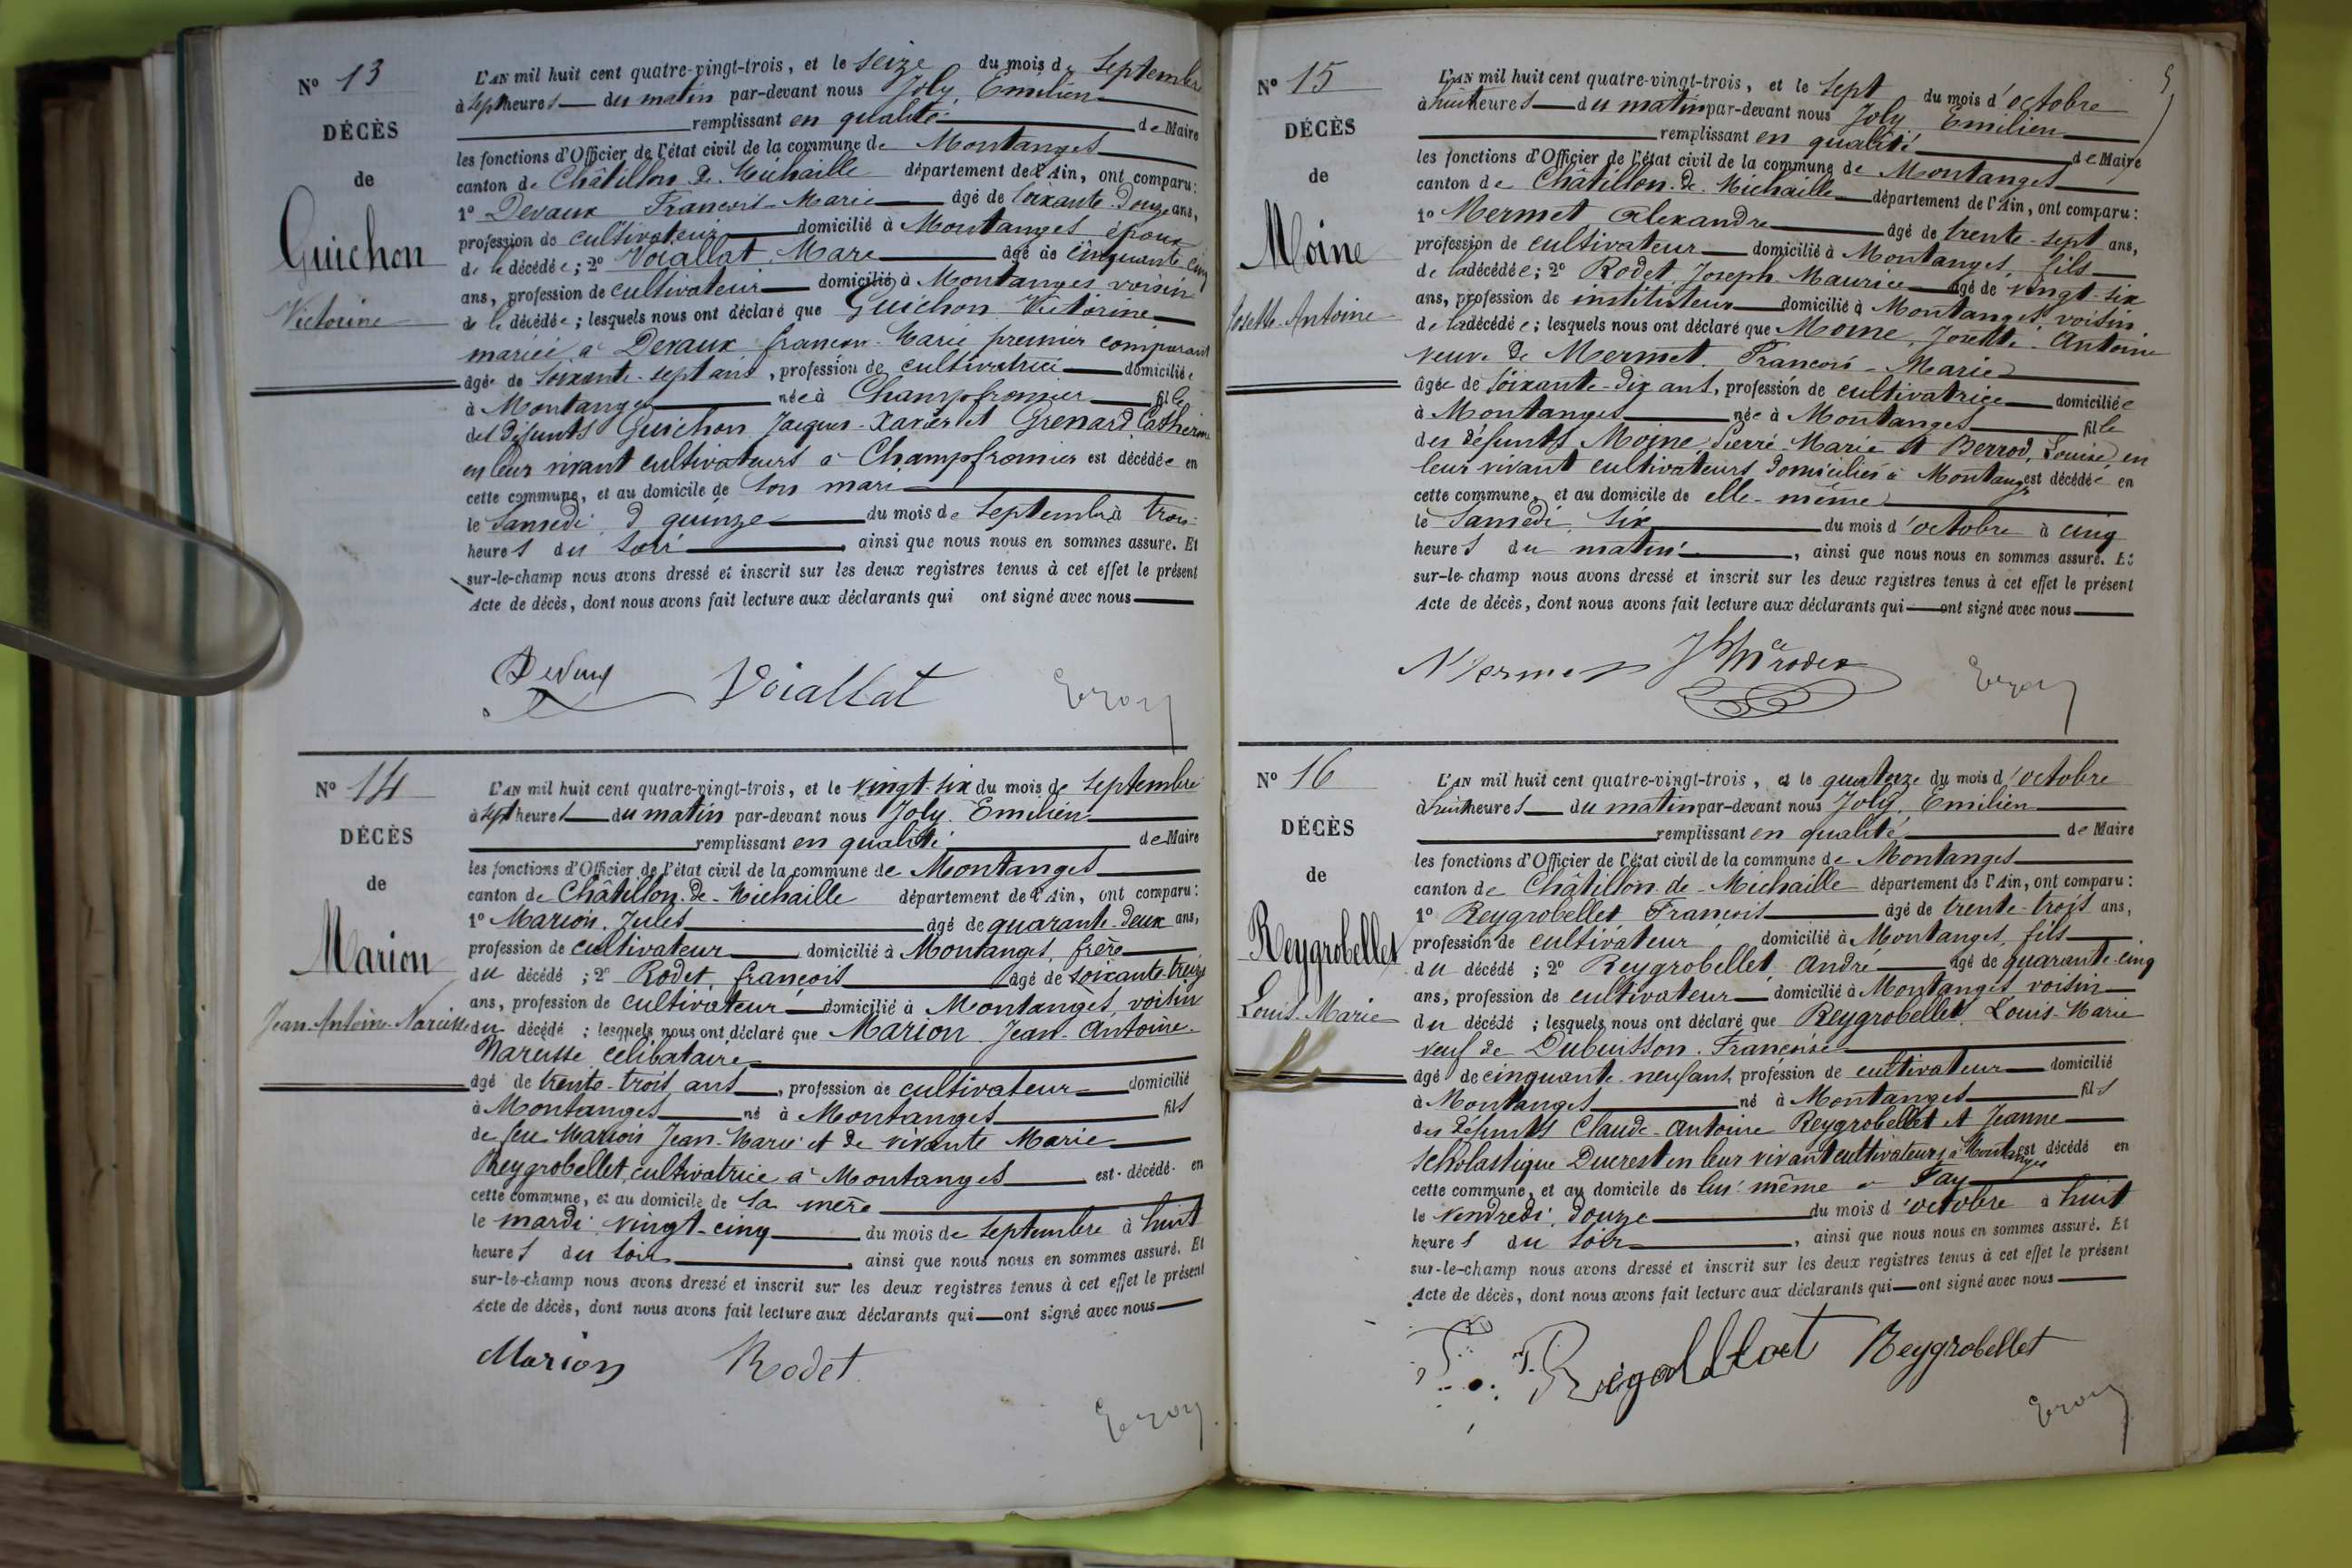 N° 13
DÉCÈS
de
Guichon
Victorine
L'AN mil huit cent quatre-vingt-trois, et le seize du mois de Septembre
à sept heures du matin par-devant nous Joly, Emilien
remplissant en qualité de Maire
les fonctions d'Officier de l'état civil de la commune de Montanges
canton de Châtillon-de-Michaille département de l'Ain, ont comparu:
1° Devaux François-Marie âgé de soixante-douze ans,
profession de cultivateur domicilié à Montanges époux
de la décédée; 2° Voiallat Marc âgé de cinquante-cinq
ans, profession de cultivateur domicilié à Montanges voisin
de la décédée; lesquels nous ont déclaré que Guichon Victorine
mariée à Devaux françois-Marie premier comparant
âgée de soixante-sept ans, profession de cultivatrice domiciliée
à Montanges née à Champfromier fille
des défunts Guichon Jacques-Xavier et Grenard Catherine
en leur vivant cultivateurs à Champfromier est décédée en
cette commune, et au domicile de son mari
le Samedi quinze du mois de Septembre à trois
heures du soir, ainsi que nous nous en sommes assuré. Et
sur-le-champ nous avons dressé et inscrit sur les deux registres tenus à cet effet le présent
Acte de décès, dont nous avons fait lecture aux déclarants qui ont signé avec nous
Devaux Voiallat
N° 14
DÉCÈS
de
Marion
Jean-Antoine-Narcisse
L'AN mil huit cent quatre-vingt-trois, et le vingt-six du mois de Septembre
à sept heures du matin par-devant nous Joly, Emilien
remplissant en qualité de Maire
les fonctions d'Officier de l'état civil de la commune de Montanges
canton de Châtillon-de-Michaille département de l'Ain, ont comparu:
1° Marion, Jules âgé de quarante-deux ans,
profession de cultivateur domicilié à Montanges, frère
du décédé; 2° Rodet, françois âgé de soixante-treize
ans, profession de cultivateur domicilié à Montanges, voisin
du décédé; lesquels nous ont déclaré que Marion Jean-Antoine-
Narcisse célibataire
âgé de trente-trois ans, profession de cultivateur domicilié
à Montanges né à Montanges fils
de feu Marion Jean-Marie et de vivante Marie
Reygrobellet, cultivatrice à Montanges est décédé en
cette commune, et au domicile de sa mère
le mardi vingt-cinq du mois de Septembre à huit
heures du soir, ainsi que nous nous en sommes assuré. Et
sur-le-champ nous avons dressé et inscrit sur les deux registres tenus à cet effet le présent
Acte de décès, dont nous avons fait lecture aux déclarants qui ont signé avec nous
Marion Rodet
N° 15
DÉCÈS
de
Moine
Josette-Antoine
L'AN mil huit cent quatre-vingt-trois, et le sept du mois d'octobre
à huit heures du matin par-devant nous Joly Emilien
remplissant en qualité de Maire
les fonctions d'Officier de l'état civil de la commune de Montanges
canton de Châtillon-de-Michaille département de l'Ain, ont comparu:
1° Mermet Alexandre âgé de trente-sept ans,
profession de cultivateur domicilié à Montanges, fils
de la décédée; 2° Rodet Joseph-Maurice âgé de vingt-six
ans, profession de instituteur domicilié à Montanges voisin
de la décédée; lesquels nous ont déclaré que Moine, Josette-Antoine
veuve de Mermet François-Marie
âgée de soixante-dix ans, profession de cultivatrice domiciliée
à Montanges née à Montanges fille
des défunts Moine Pierre-Marie et Berrod, Louise en
leur vivant cultivateurs domiciliés à Montanges est décédée en
cette commune, et au domicile de elle-même
le Samedi six du mois d'octobre à cinq
heures du matin, ainsi que nous nous en sommes assuré. Et
sur-le-champ nous avons dressé et inscrit sur les deux registres tenus à cet effet le présent
Acte de décès, dont nous avons fait lecture aux déclarants qui ont signé avec nous
Mermet
N° 16
DÉCÈS
de
Reygrobellet
Louis-Marie
L'AN mil huit cent quatre-vingt-trois, et le quatorze du mois d'octobre
à huit heures du matin par-devant nous Joly, Emilien
remplissant en qualité de Maire
les fonctions d'Officier de l'état civil de la commune de Montanges
canton de Châtillon-de-Michaille département de l'Ain, ont comparu:
1° Reygrobellet François âgé de trente-trois ans,
profession de cultivateur domicilié à Montanges, fils
du décédé; 2° Reygrobellet André âgé de quarante-cinq
ans, profession de cultivateur domicilié à Montanges voisin
du décédé; lesquels nous ont déclaré que Reygrobellet Louis-Marie
veuf de Dubuisson Françoise
âgé de cinquante-neuf ans, profession de cultivateur domicilié
à Montanges né à Montanges fils
des défunts Claude-Antoine Reygrobellet et Jeanne
Scholastique Ducrest en leur vivant cultivateurs à Montanges est décédé en
cette commune, et au domicile de lui-même à Fay
le Vendredi douze du mois d'octobre à huit
heures du soir, ainsi que nous nous en sommes assuré. Et
sur-le-champ nous avons dressé et inscrit sur les deux registres tenus à cet effet le présent
Acte de décès, dont nous avons fait lecture aux déclarants qui ont signé avec nous
Reygrobellet